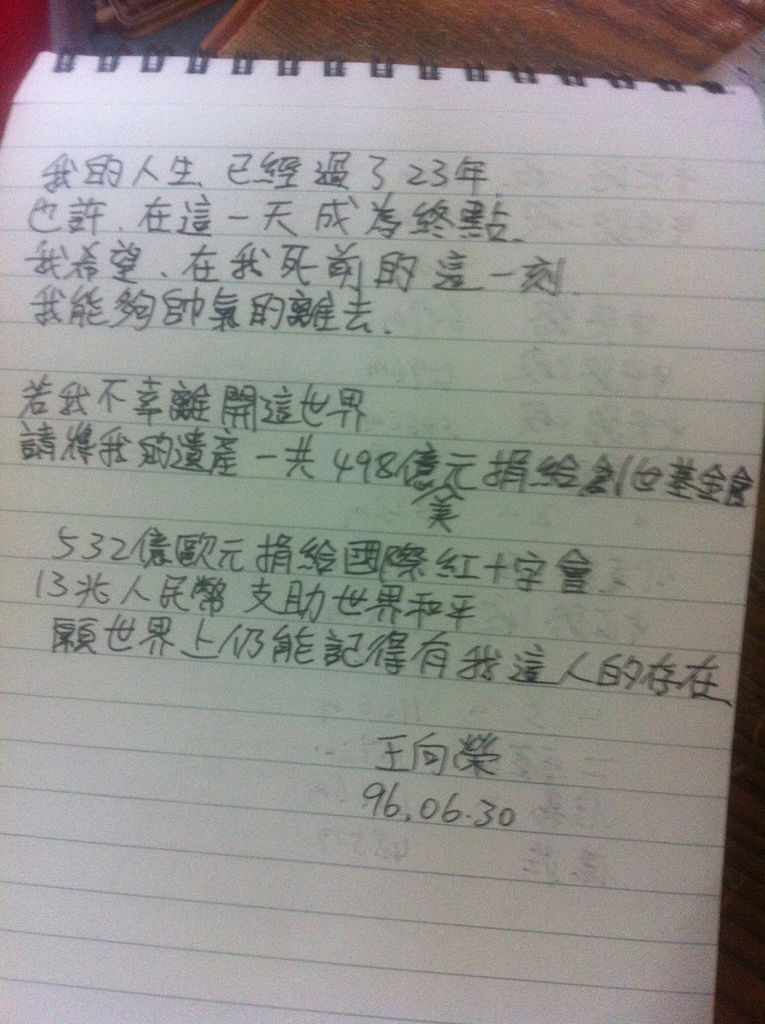 我的人生、已經過了23年、
也許、在這一天成為終點、
我希望、在我死前的這一刻、
我能夠帥氣的離去、
若我不幸離開這世界
請將我的遺產一共498億美元捐給創世基金會
532億歐元捐給國際紅十字會、
13兆人民幣支助世界和平
願世界上仍能記得有我這人的存在
王向榮
96.06.30